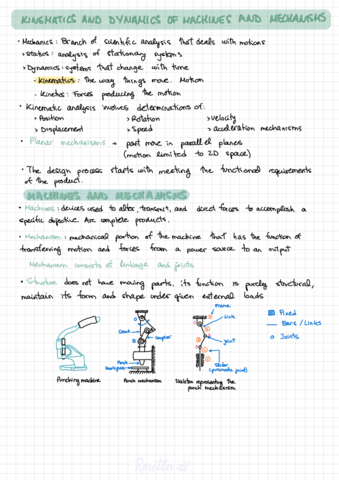 KINEMATICS AND DYNAMICS OF MACHINES AND MECHANISMS
• Mechanics: Branch of scientific analysis that deals with motions
> Statics: analysis of stationary systems
> Dynamics: systems that change with time
- Kinematics: the way things move. Motion
- Kinetics: Forces producing the motion
• Kinematic analysis involves determinations of:
> Position > Rotation > velocity
> Displacement > Speed > acceleration mechanisms
• Planar mechanisms → part move in parallel planes
(motion limited to 2D space)
• The design process starts with meeting the functional requirements
of the product.
MACHINES AND MECHANISMS
• Machines: devices used to alter, transmit, and direct forces to accomplish a
specific objective. Are complete products.
• Mechanism: mechanical portion of the machine that has the function of
transferring motion and forces from a power source to an output
Mechanism consists of linkage and joints
• Structure does not have moving parts. its function is purely structural,
maintain its form and shape under given external loads
Frame
Link
Crank
coupler
joint
Punch
Workpiece
Slider
(prismatic joint)
Fixed
Bars / Links
Joints
Punching machine
Punch mechanism
Skeleton representing the
punch mechanism